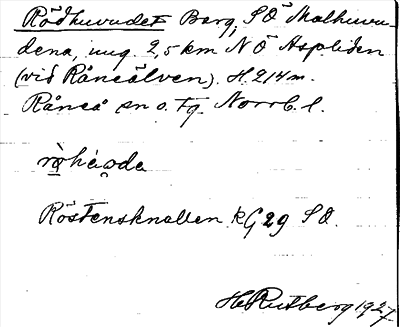 Rödhuvudet Berg, SÖ Malhuvu-
dena, ung. 2,5 km NÖ Aspliden
(vid Råneälven). H. 214 m.
Råneå sn o. tg. Norrb. l.
Röstensknallen kG 29 SO.
H. Rutberg 1927